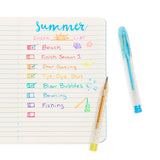 Summer
Beach
Finish Season 1
Star Gazing
Tye-Dye Shirt
Blow Bubbles
Bowling
Fishing